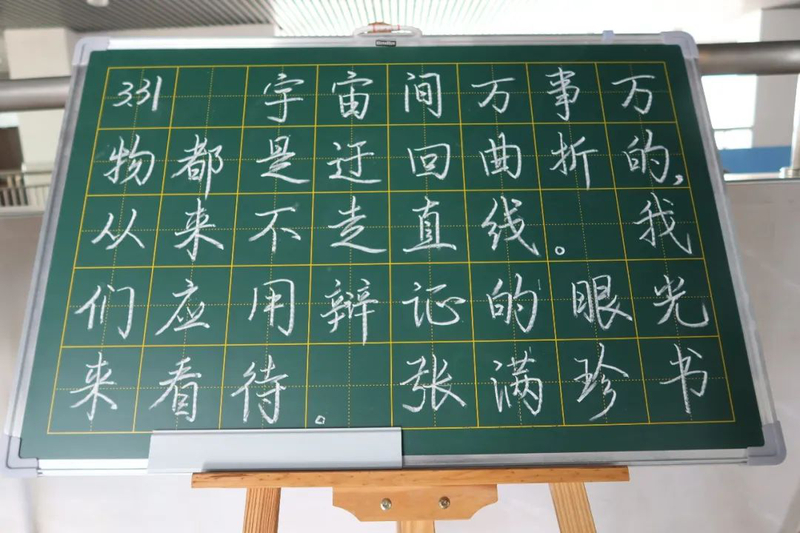 331 宇宙间万事万
物都是迂回曲折的,
从来不走直线。我
们应用辩证的眼光
来看待。张满珍书